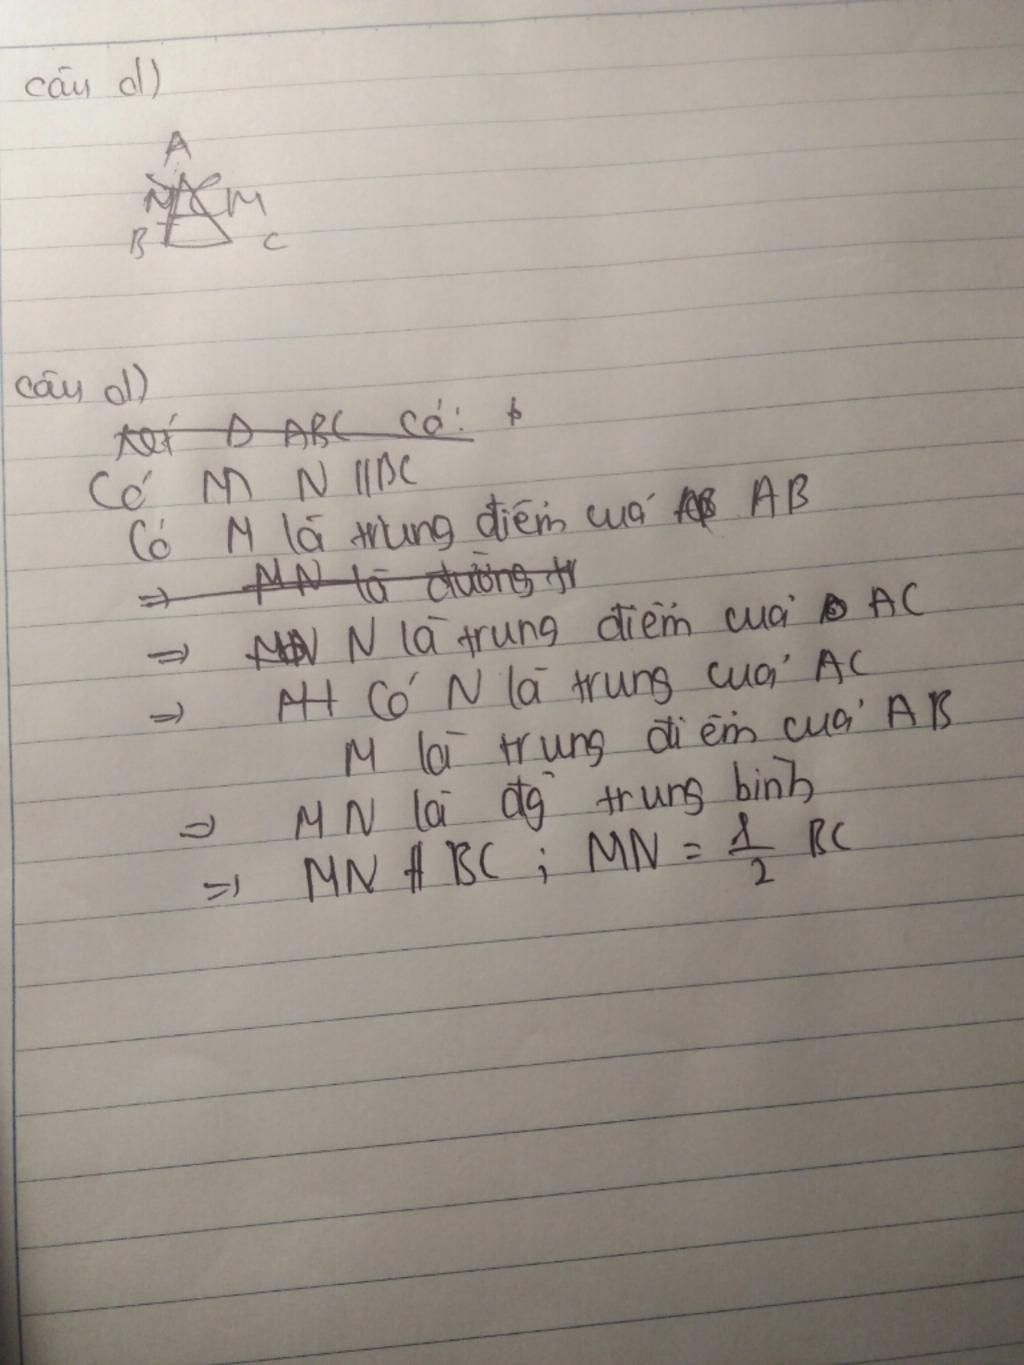 câu d)
A
N M
B C
câu d)
Xét Δ ABC có:
Có M N // BC
Có M là trung điểm của AB
⇒ MN là đường tr
⇒ N là trung điểm của AC
⇒ Có N là trung của AC
M là trung điểm của AB
⇒ MN là đg trung bình
⇒ MN // BC ; MN = 1/2 BC